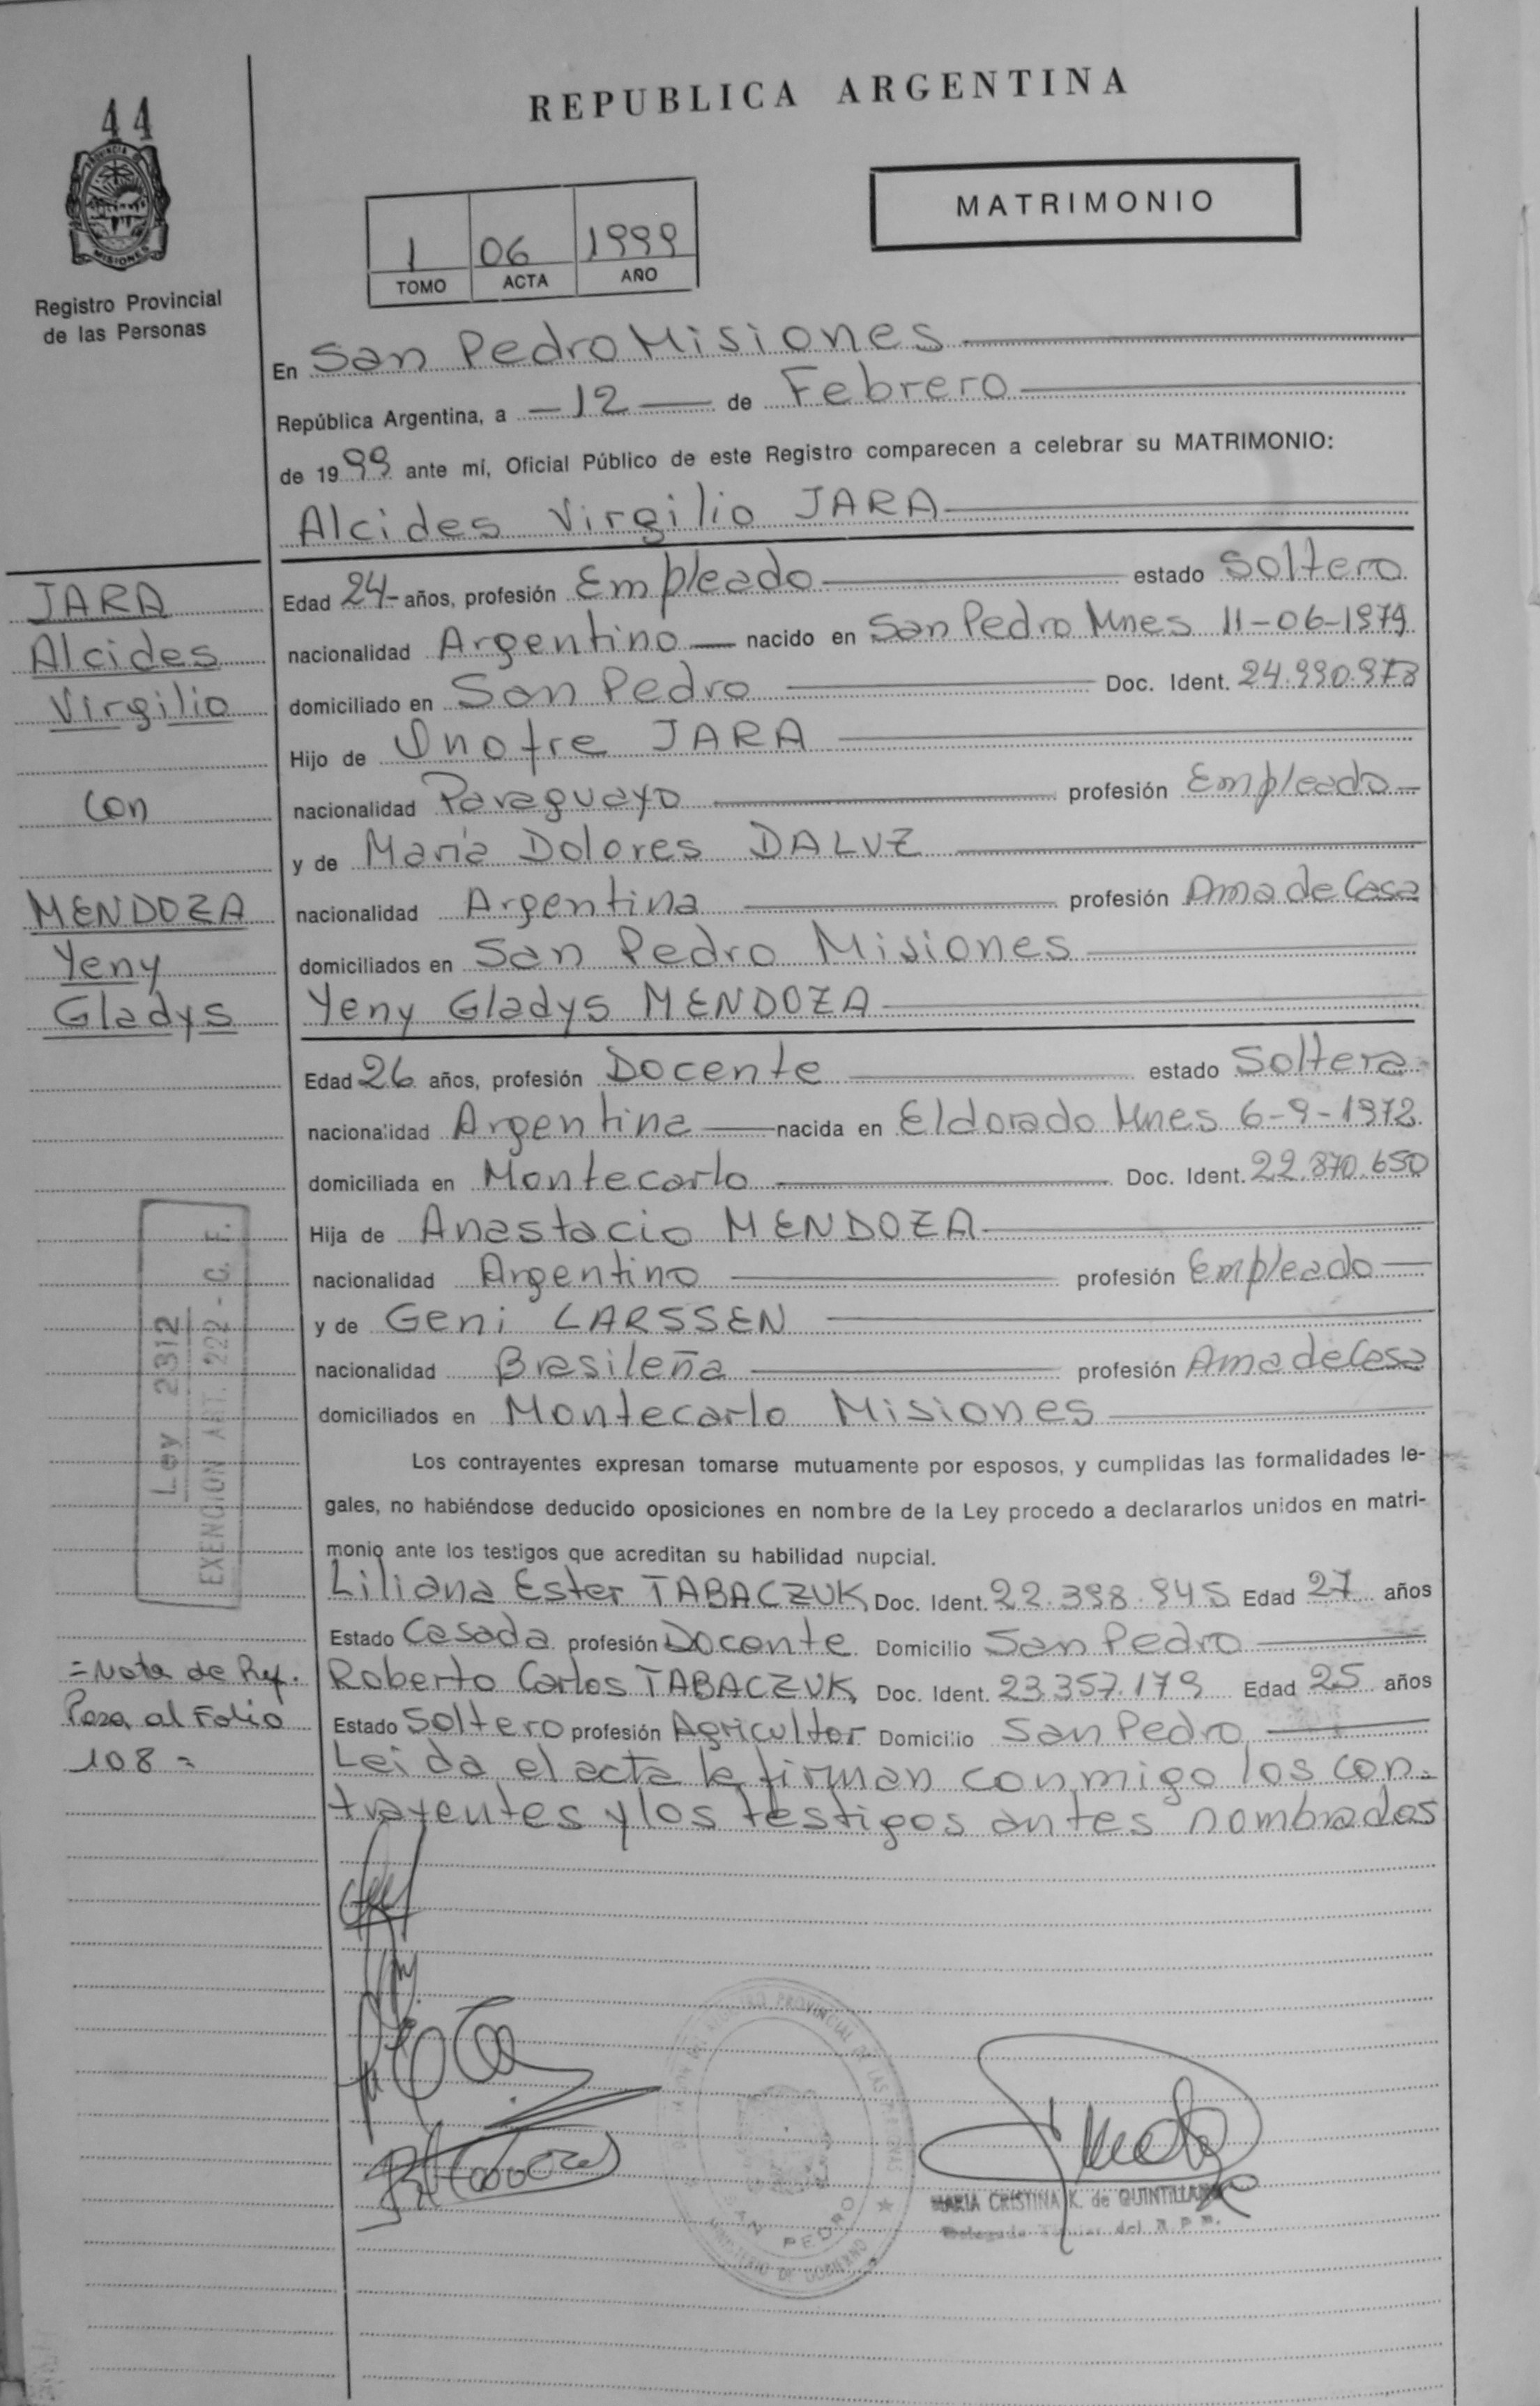 44
REPUBLICA ARGENTINA
PROVINCIA DE
MISIONES
Registro Provincial
de las Personas
MATRIMONIO
1 06 1999
TOMO ACTA AÑO
En San Pedro Misiones
República Argentina, a -12- de Febrero
de 1999 ante mí, Oficial Público de este Registro comparecen a celebrar su MATRIMONIO:
Alcides Virgilio JARA
JARA
Alcides
Virgilio
con
MENDOZA
Yeny
Gladys
Edad 24- años, profesión Empleado estado Soltero
nacionalidad Argentino nacido en San Pedro Mnes 11-06-1974
domiciliado en San Pedro Doc. Ident. 24.990.978
Hijo de Onofre JARA
nacionalidad Paraguayo profesión Empleado
y de María Dolores DALUZ
nacionalidad Argentina profesión Ama de Casa
domiciliados en San Pedro Misiones
Yeny Gladys MENDOZA
Edad 26 años, profesión Docente estado Soltera
nacionalidad Argentina nacida en Eldorado Mnes 6-9-1972
domiciliada en Montecarlo Doc. Ident. 22.870.650
Hija de Anastacio MENDOZA
nacionalidad Argentino profesión Empleado
y de Geni LARSSEN
nacionalidad Brasileña profesión Ama de Casa
domiciliados en Montecarlo Misiones
Ley 2312
EXENCION ART. 222 - C. F.
Los contrayentes expresan tomarse mutuamente por esposos, y cumplidas las formalidades le-
gales, no habiéndose deducido oposiciones en nombre de la Ley procedo a declararlos unidos en matri-
monio ante los testigos que acreditan su habilidad nupcial.
Liliana Ester TABACZUK Doc. Ident. 22.398.945 Edad 27 años
Estado Casada profesión Docente Domicilio San Pedro
Roberto Carlos TABACZUK Doc. Ident. 23.357.179 Edad 25 años
Estado Soltero profesión Agricultor Domicilio San Pedro
Leida el acta la firman conmigo los con-
trayentes y los testigos antes nombrados
=Nota de Ref.
Pasa al Folio
108=
REGISTRO PROVINCIAL DE LAS PERSONAS
SAN PEDRO
MINISTERIO DE GOBIERNO
MARIA CRISTINA K. de QUINTILLAN
Delegada Titular del R.P.P.